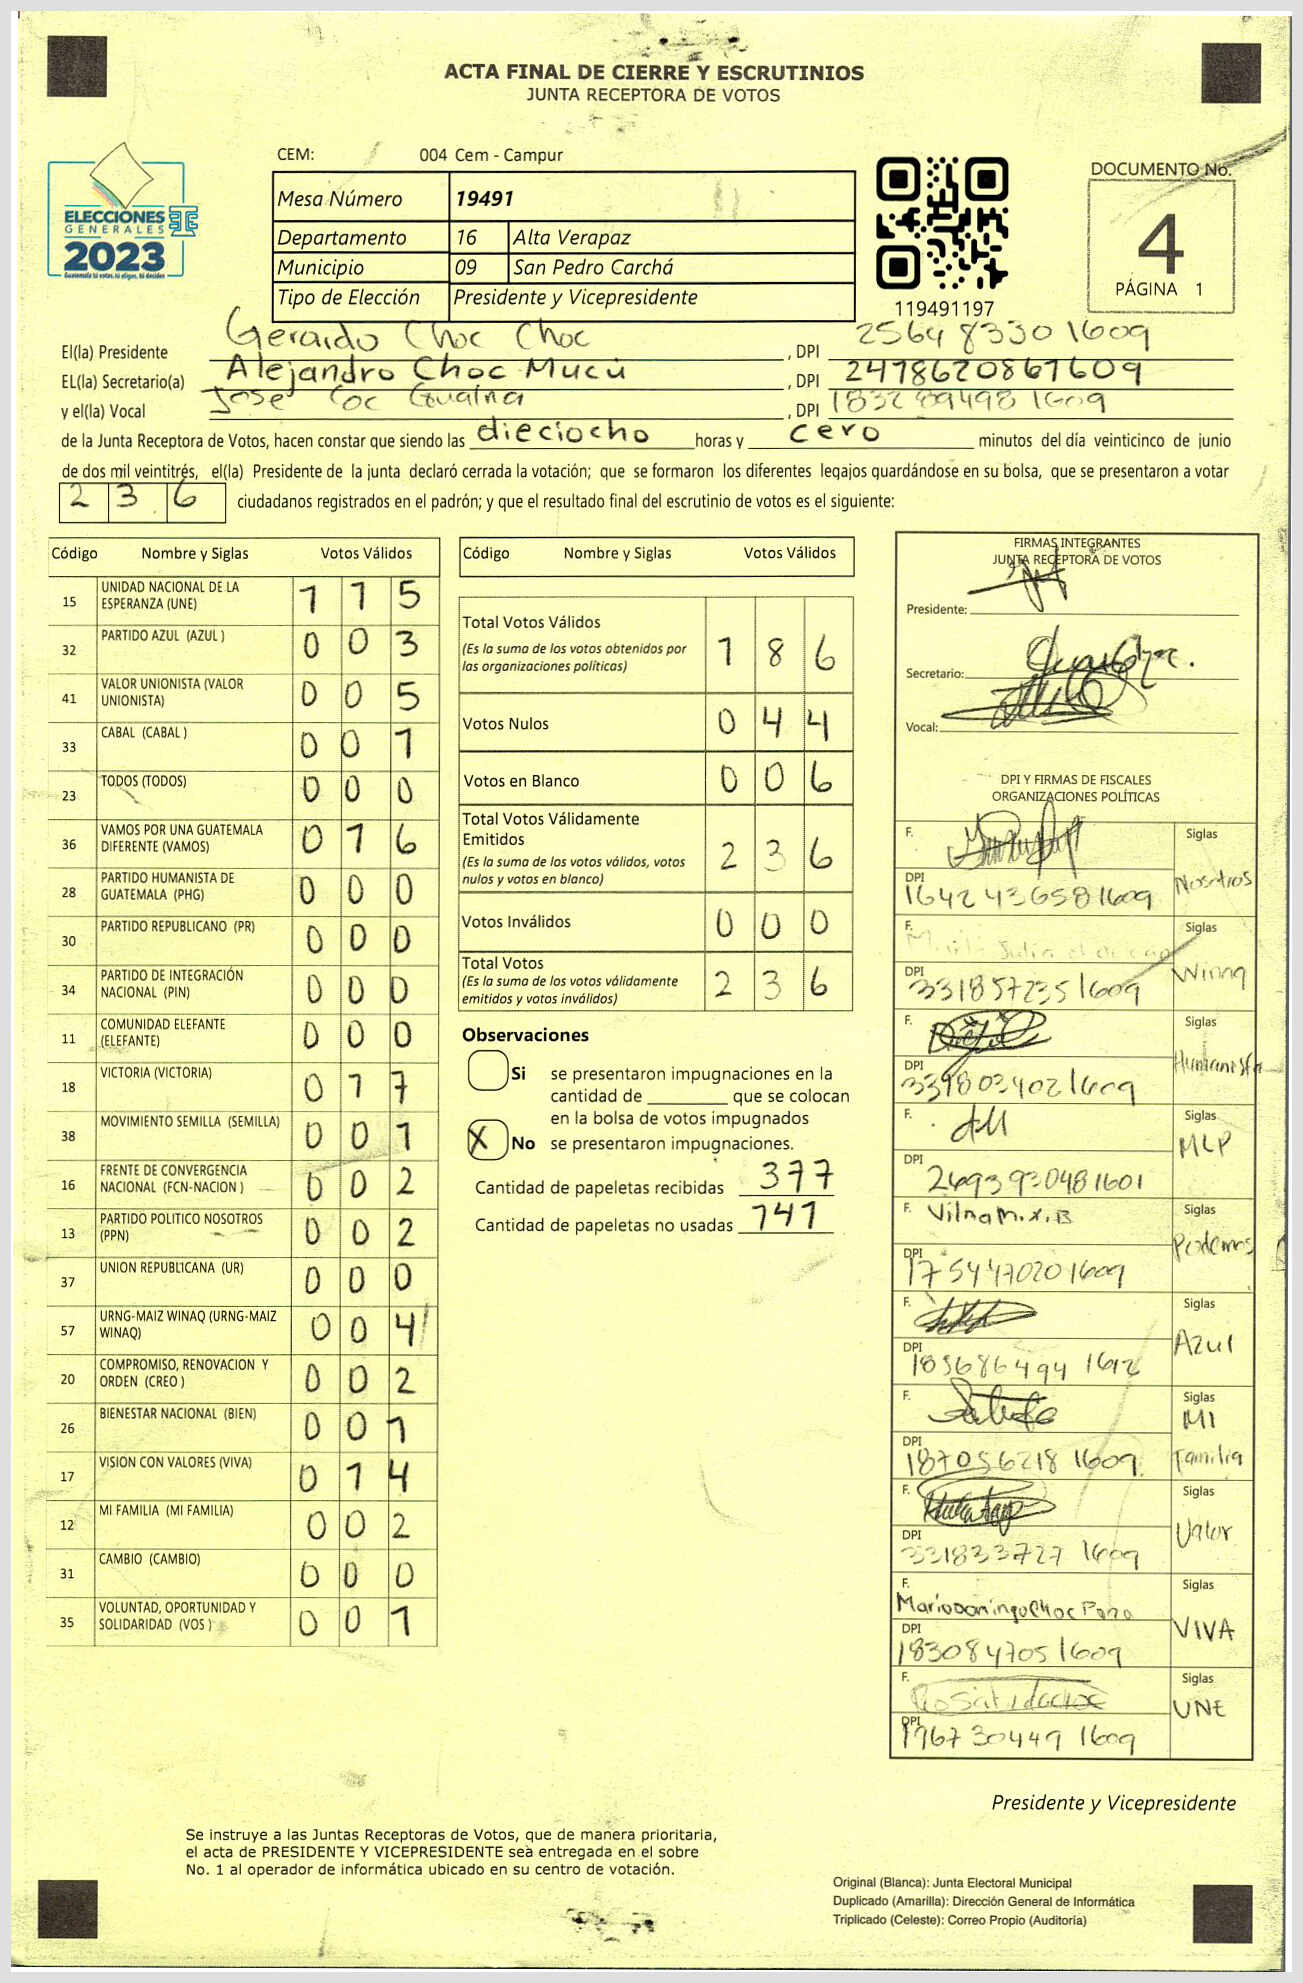 ACTA FINAL DE CIERRE Y ESCRUTINIOS
JUNTA RECEPTORA DE VOTOS
ELECCIONES
GENERALES
2023
Guatemala tú votas, tú eliges, tú decides
CEM: 004 Cem - Campur
Mesa Número 19491
Departamento 16 Alta Verapaz
Municipio 09 San Pedro Carchá
Tipo de Elección Presidente y Vicepresidente
119491197
DOCUMENTO No.
4
PÁGINA 1
El(la) Presidente Gerardo Choc Choc , DPI 2564 83301609
EL(la) Secretario(a) Alejandro Choc Mucú , DPI 2478620861609
y el(la) Vocal Jose Coc , DPI 1832894981609
de la Junta Receptora de Votos, hacen constar que siendo las dieciocho horas y cero minutos del día veinticinco de junio
de dos mil veintitrés, el(la) Presidente de la junta declaró cerrada la votación; que se formaron los diferentes legajos guardándose en su bolsa, que se presentaron a votar
2 3 6 ciudadanos registrados en el padrón; y que el resultado final del escrutinio de votos es el siguiente:
Código Nombre y Siglas Votos Válidos
15 UNIDAD NACIONAL DE LA ESPERANZA (UNE) 1 1 5
32 PARTIDO AZUL (AZUL ) 0 0 3
41 VALOR UNIONISTA (VALOR UNIONISTA) 0 0 5
33 CABAL (CABAL ) 0 0 1
23 TODOS (TODOS) 0 0 0
36 VAMOS POR UNA GUATEMALA DIFERENTE (VAMOS) 0 1 6
28 PARTIDO HUMANISTA DE GUATEMALA (PHG) 0 0 0
30 PARTIDO REPUBLICANO (PR) 0 0 0
34 PARTIDO DE INTEGRACIÓN NACIONAL (PIN) 0 0 0
11 COMUNIDAD ELEFANTE (ELEFANTE) 0 0 0
18 VICTORIA (VICTORIA) 0 1 7
38 MOVIMIENTO SEMILLA (SEMILLA) 0 0 1
16 FRENTE DE CONVERGENCIA NACIONAL (FCN-NACION ) 0 0 2
13 PARTIDO POLITICO NOSOTROS (PPN) 0 0 2
37 UNION REPUBLICANA (UR) 0 0 0
57 URNG-MAIZ WINAQ (URNG-MAIZ WINAQ) 0 0 4
20 COMPROMISO, RENOVACION Y ORDEN (CREO ) 0 0 2
26 BIENESTAR NACIONAL (BIEN) 0 0 1
17 VISION CON VALORES (VIVA) 0 1 4
12 MI FAMILIA (MI FAMILIA) 0 0 2
31 CAMBIO (CAMBIO) 0 0 0
35 VOLUNTAD, OPORTUNIDAD Y SOLIDARIDAD (VOS ) 0 0 1
Código Nombre y Siglas Votos Válidos
Total Votos Válidos 1 8 6
(Es la suma de los votos obtenidos por
las organizaciones políticas)
Votos Nulos 0 4 4
Votos en Blanco 0 0 6
Total Votos Válidamente
Emitidos 2 3 6
(Es la suma de los votos válidos, votos
nulos y votos en blanco)
Votos Inválidos 0 0 0
Total Votos 2 3 6
(Es la suma de los votos válidamente
emitidos y votos inválidos)
Observaciones
Si se presentaron impugnaciones en la
cantidad de ________ que se colocan
en la bolsa de votos impugnados
X No se presentaron impugnaciones.
Cantidad de papeletas recibidas 377
Cantidad de papeletas no usadas 141
FIRMAS INTEGRANTES
JUNTA RECEPTORA DE VOTOS
Presidente:
Secretario:
Vocal:
DPI Y FIRMAS DE FISCALES
ORGANIZACIONES POLÍTICAS
F. Siglas
DPI Nosotros
1642 436581609
F. Siglas
DPI Winaq
331857235 1609
F. Siglas
DPI Humanista
339803402 1609
F. Siglas
MLP
DPI
2693930481601
F. Vilma M.X.B Siglas
DPI Podemos
1754470201609
F. Siglas
DPI Azul
185686494 1612
F. Siglas
MI
DPI Familia
187056218 1609
F. Siglas
DPI Valor
331833727 1609
F. Siglas
Mario Domingo Choc Pop
DPI VIVA
183084705 1609
F. Siglas
DPI UNE
196730449 1609
Presidente y Vicepresidente
Se instruye a las Juntas Receptoras de Votos, que de manera prioritaria,
el acta de PRESIDENTE Y VICEPRESIDENTE sea entregada en el sobre
No. 1 al operador de informática ubicado en su centro de votación.
Original (Blanca): Junta Electoral Municipal
Duplicado (Amarilla): Dirección General de Informática
Triplicado (Celeste): Correo Propio (Auditoría)